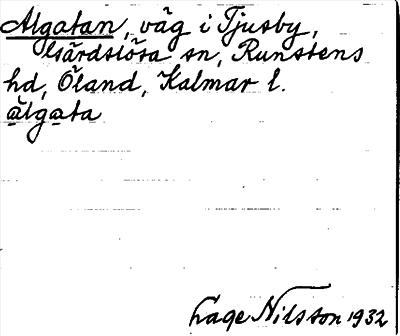 Algatan, väg i Tjusby,
Gärdslösa sn, Runstens
hd, Öland, Kalmar l.
a̱lga̱ta
Lage Nilsson 1932